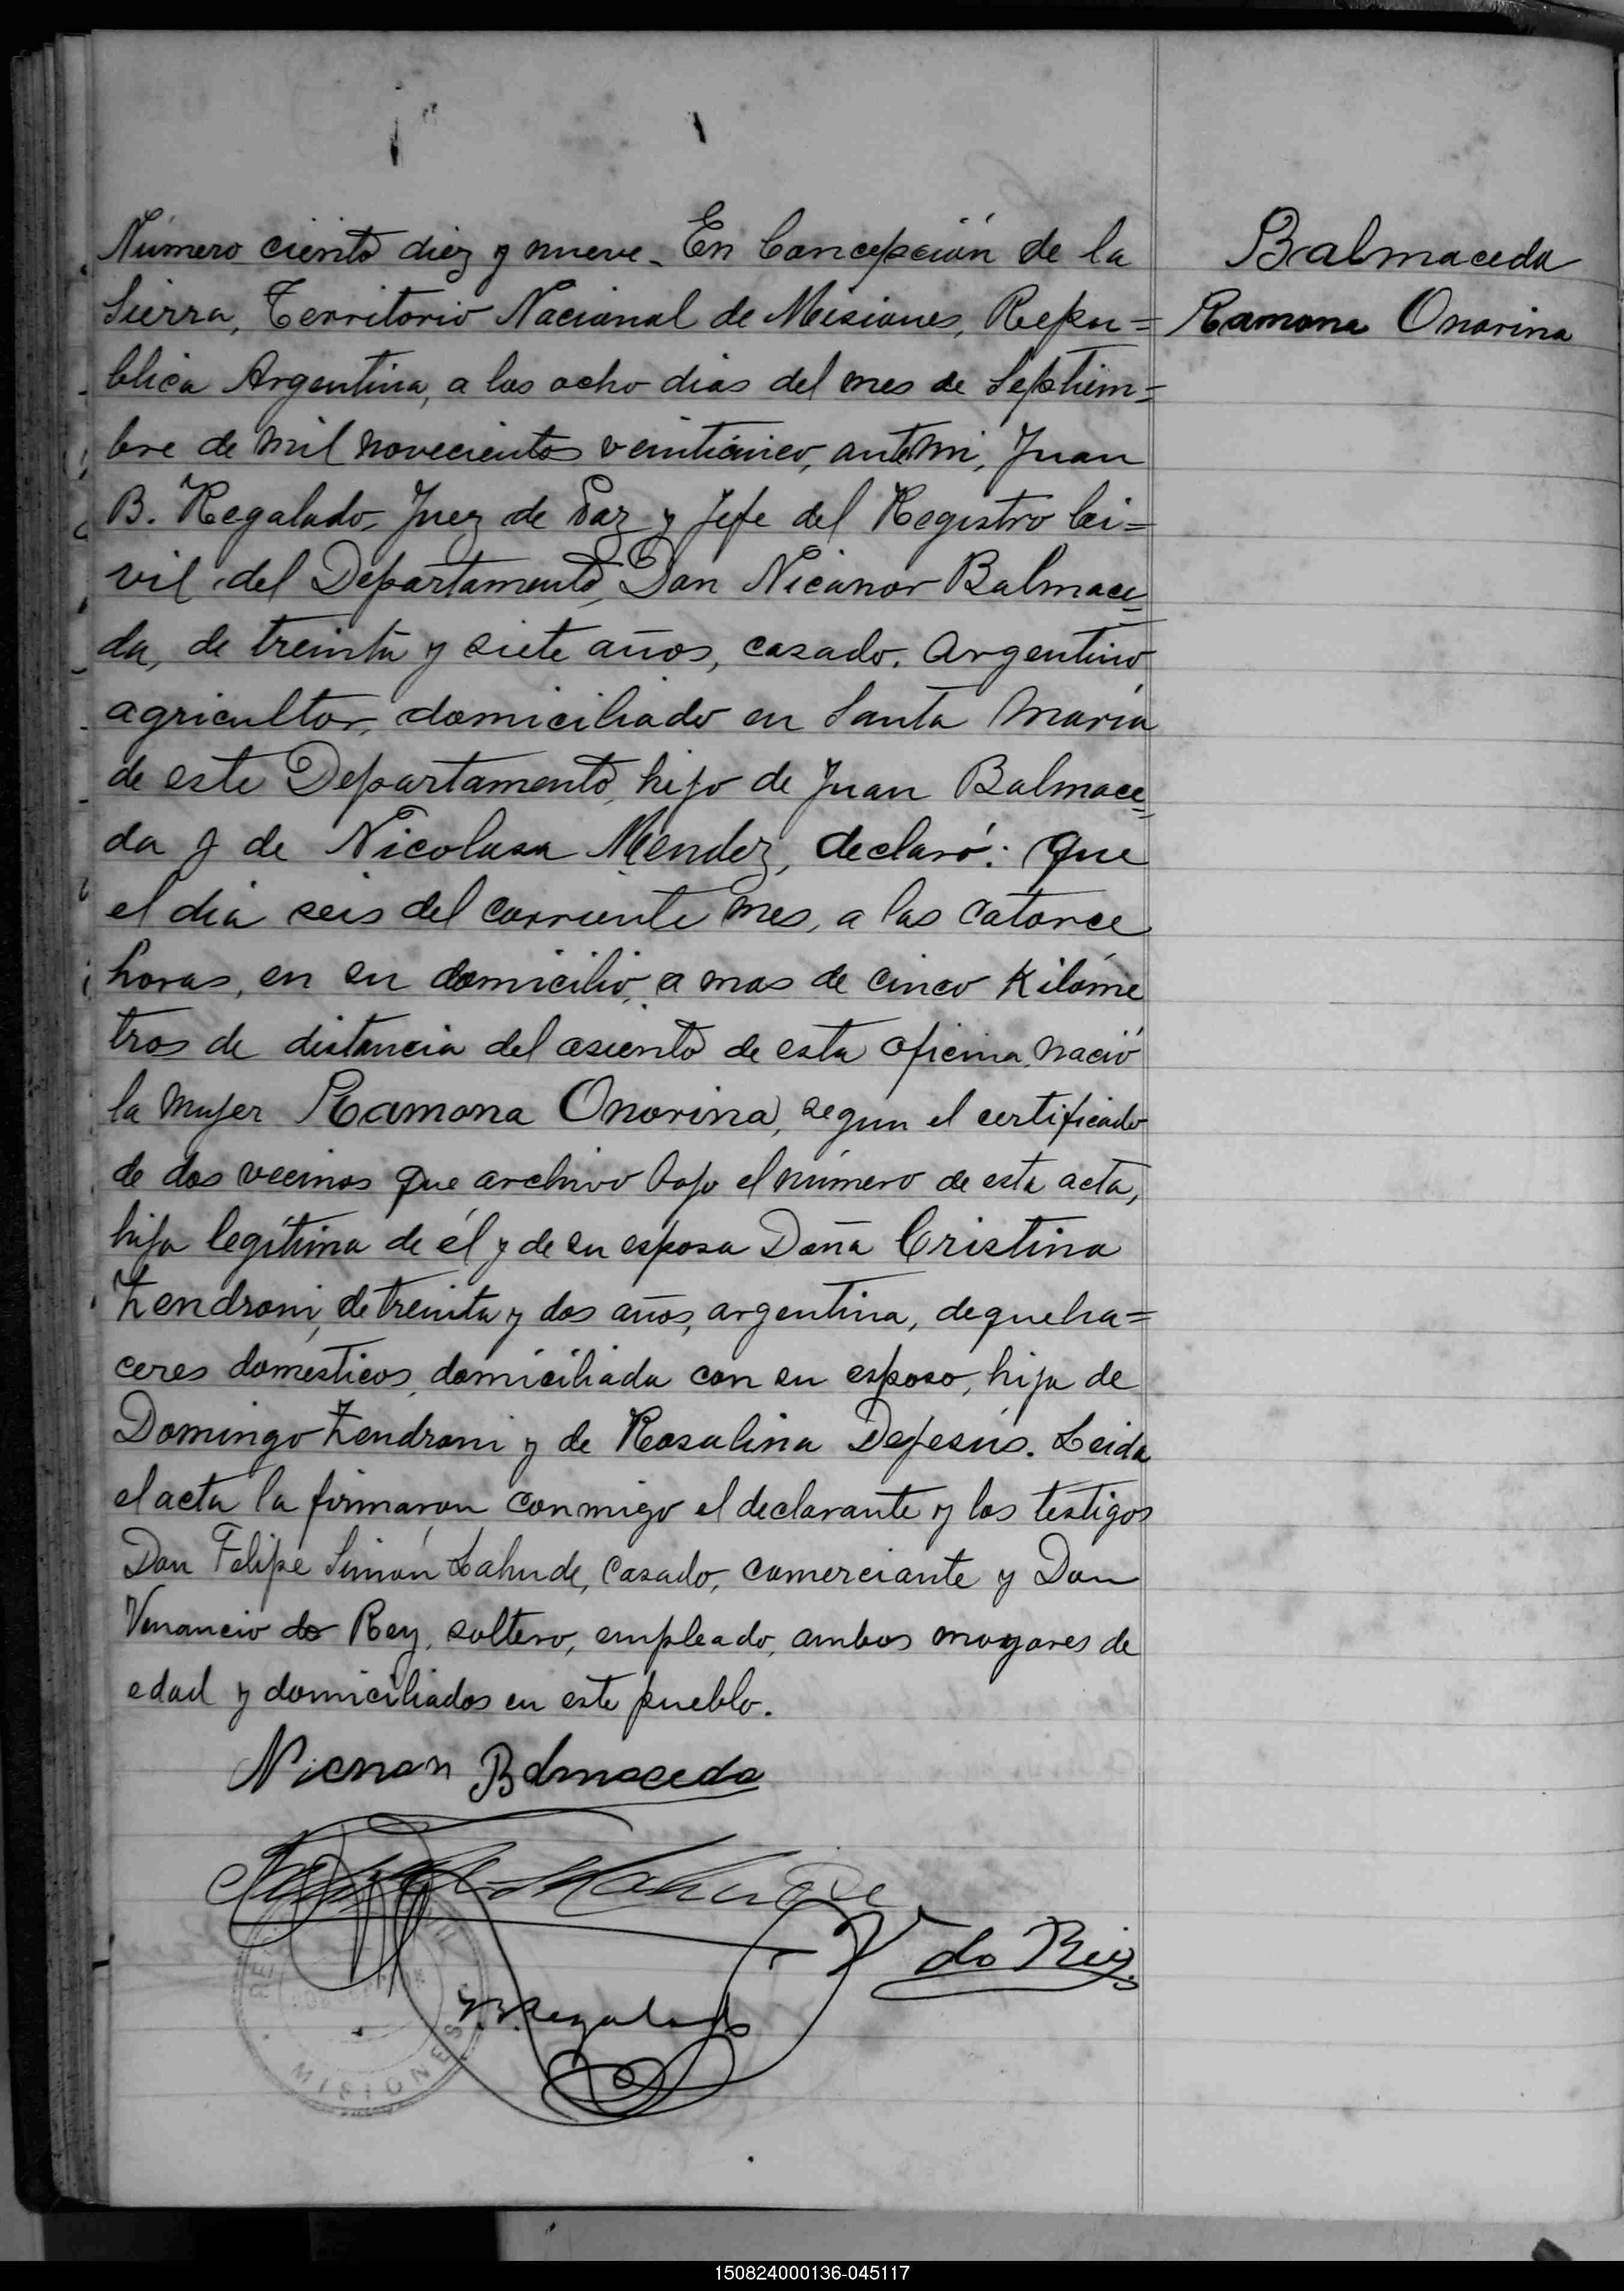 Número ciento diez y nueve - En Concepción de la
Sierra, Territorio Nacional de Misiones, Repu=
blica Argentina, a los ocho dias del mes de Septiem=
bre de mil novecientos veinticinco, ante mi, Juan
B. Regalado, Juez de Paz y Jefe del Registro Ci=
vil del Departamento, Don Nicanor Balmace=
da, de treinta y siete años, casado, Argentino
agricultor, domiciliado en Santa María
de este Departamento, hijo de Juan Balmace=
da y de Nicolasa Mendez, declaró: Que
el dia seis del corriente mes, a las catorce
horas, en su domicilio, a mas de cinco Kilóme
tros de distancia del asiento de esta oficina, nació
la mujer Ramona Onorina, segun el certificado
de dos vecinos que archivo bajo el número de esta acta,
hija legítima de él y de su esposa Doña Cristina
Zendroni, de treinta y dos años, argentina, de queha=
ceres domésticos, domiciliada con su esposo, hija de
Domingo Zendroni y de Rosalina Dejesús. Leida
el acta la firmaron conmigo el declarante y los testigos
Don Felipe Simón Lahude, casado, comerciante y Don
Venancio do Rey, soltero, empleado, ambos mayores de
edad y domiciliados en este pueblo.
Balmaceda
Ramona Onorina
Nicnon Balmaceda
V do Rey
JBRegalado
MISIONES
150824000136-045117